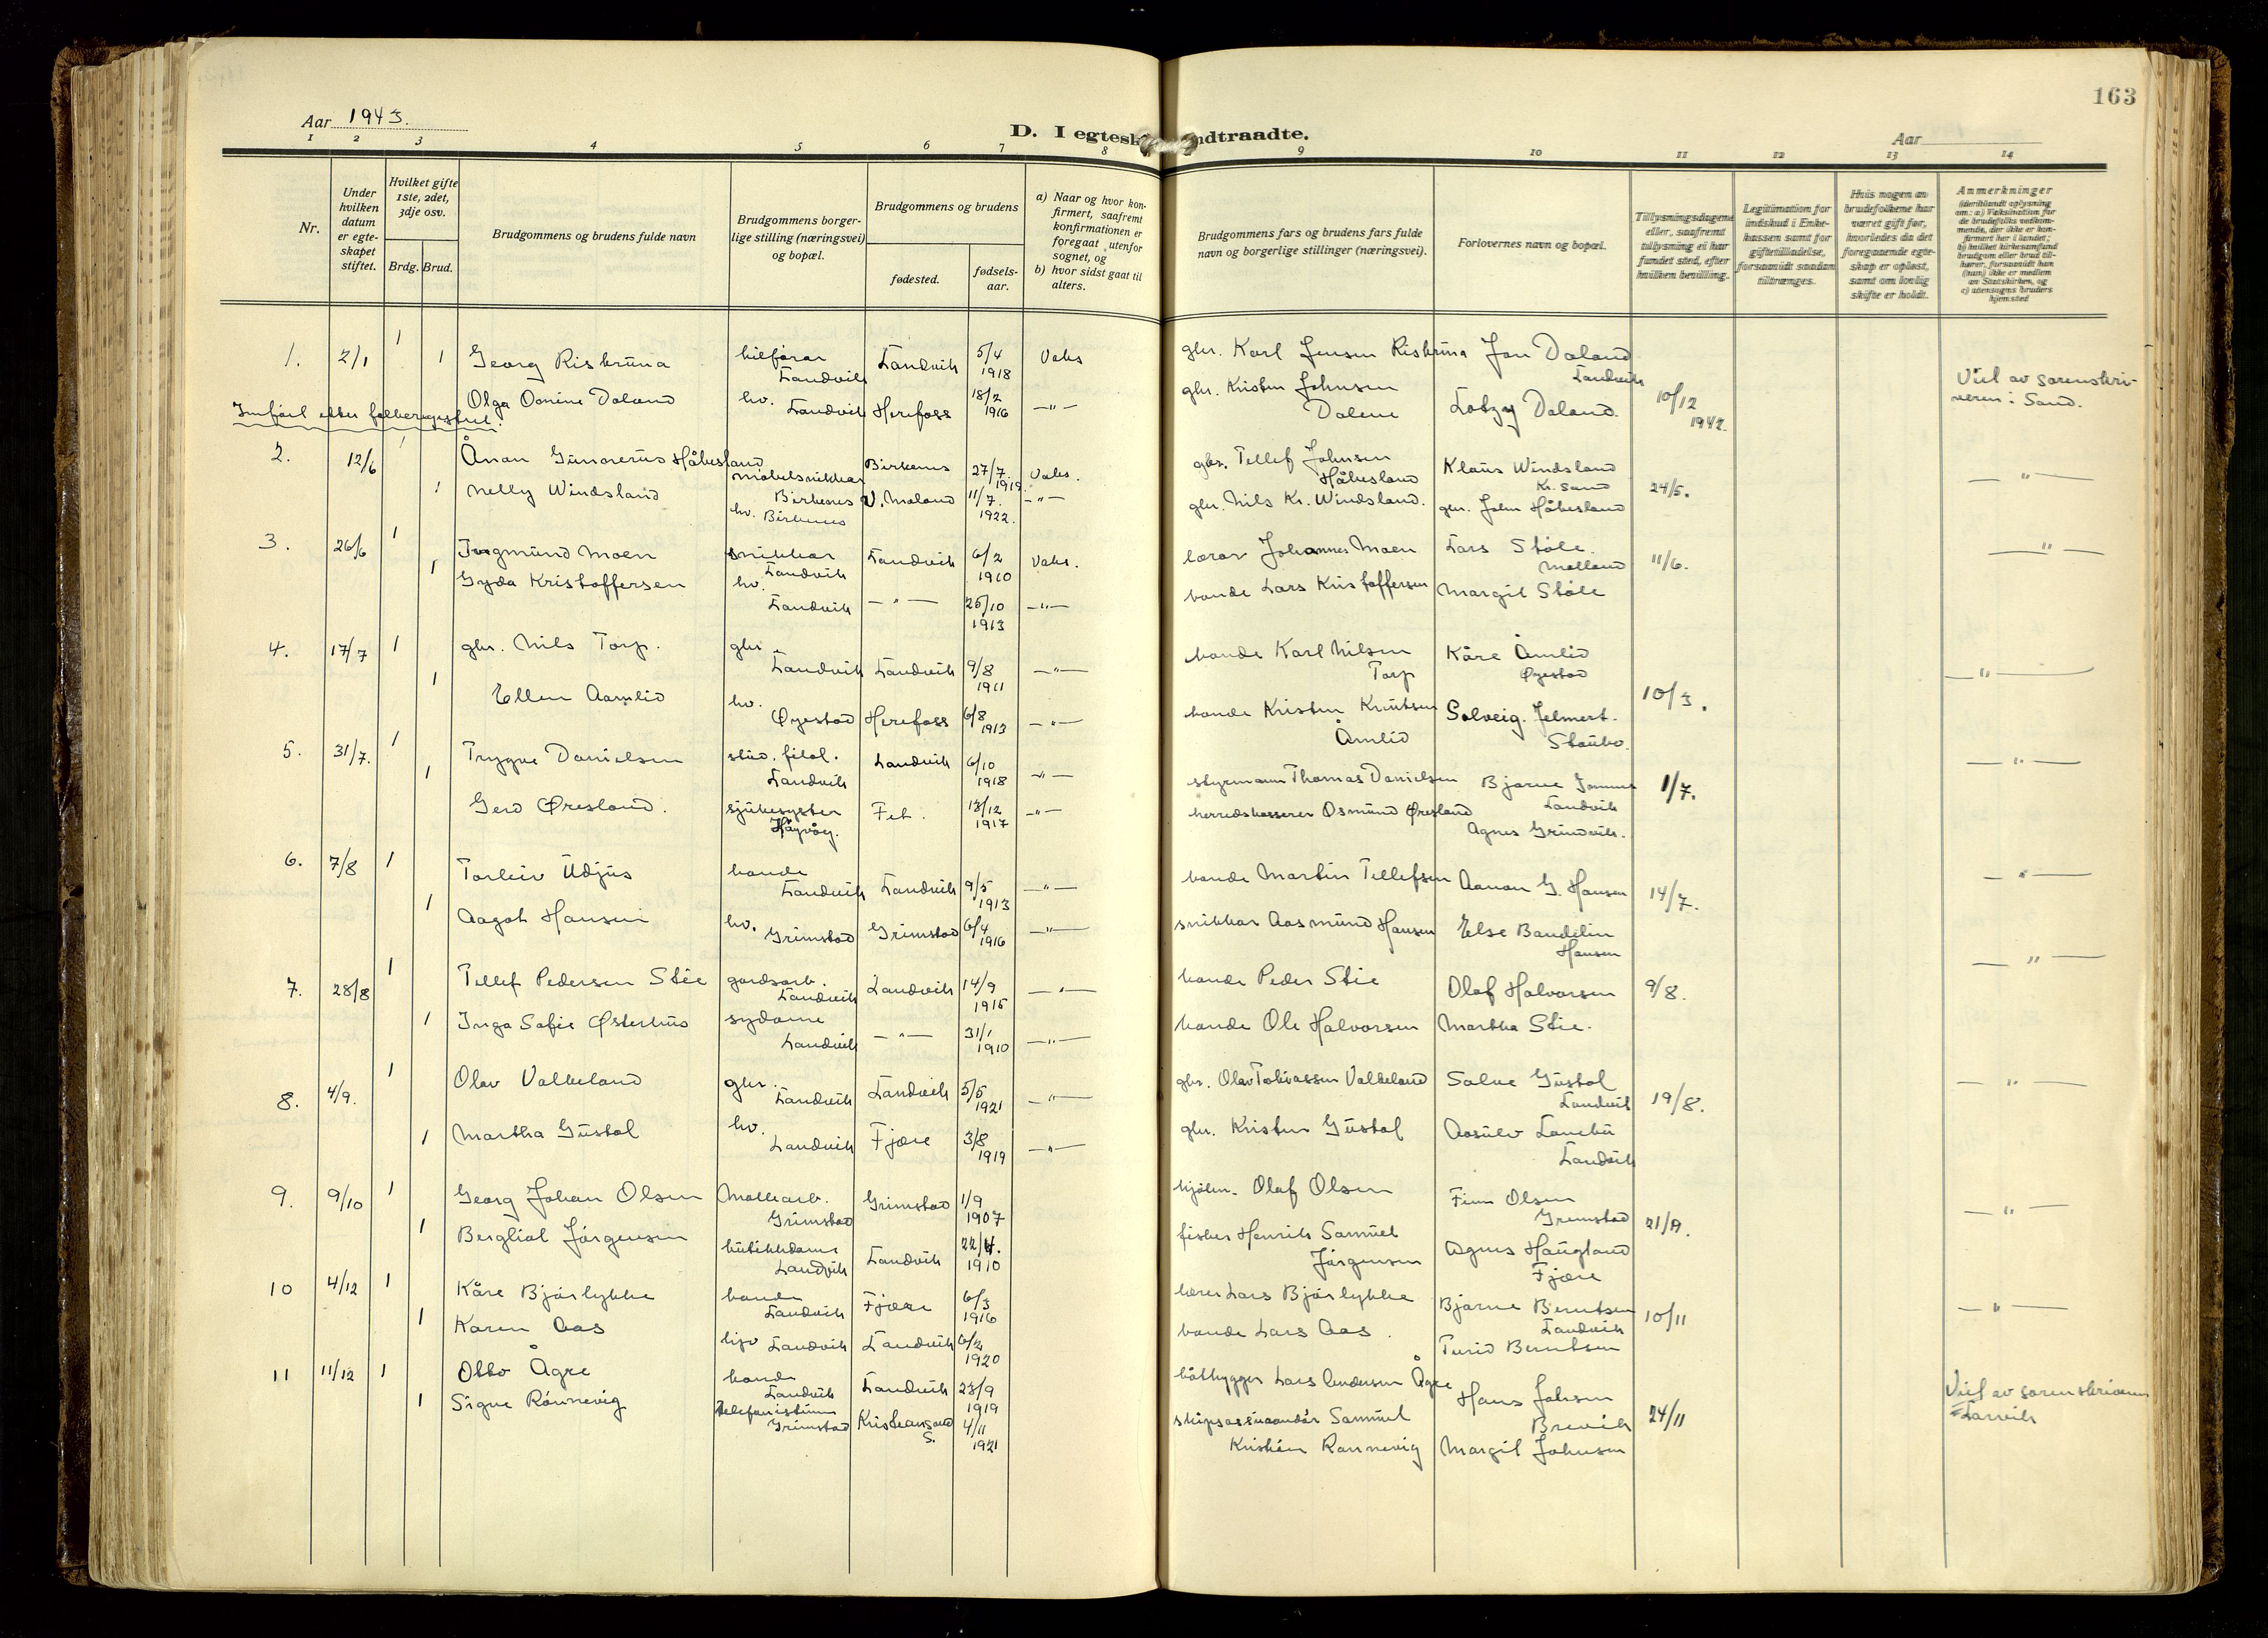 163
Aar 1943.
D. I egtesk
ndtraadte.
Aar
1 2 3 4 5 6 7 8 9 10 11 12 13 14
Nr.
Under hvilken datum er egteskapet stiftet.
Hvilket gifte 1ste, 2det, 3dje osv.
Brdg. Brud.
Brudgommens og brudens fulde navn
Brudgommens borgerlige stilling (næringsvei) og bopæl.
Brudgommens og brudens
fødested.
fødselsaar.
a) Naar og hvor konfirmert, saafremt konfirmationen er foregaat utenfor sognet, og
b) hvor sidst gaat til alters.
Brudgommens fars og brudens fars fulde navn og borgerlige stillinger (næringsvei).
Forlovernes navn og bopæl.
Tillysningsdagene eller, saafremt tillysning ei har fundet sted, efter hvilken bevilling.
Legitimation for indskud i Enkekassen samt for giftetilladelse, forsaavidt saadan tiltrænges.
Hvis nogen av brudefolkene har været gift før, hvorledes da det foregaaende egteskap er opløst, samt om lovlig skifte er holdt.
Anmerkninger
1. 2/1 1 Georg Risbruna bilførar Landvik Landvik 5/4 1918 Vaks gbr. Karl Jensen Risbruna Jon Daland Landvik
1 Olga Daland hv. Landvik Herefoss 18/2 1916 —"— gbr. Kristen Johnsen Dalene Daland. 10/12 1942. Viet av sorenskriveren i Sand.
Innført etter folkeregistret.
2. 12/6 1 Ånon Gunerius Håbesland møbelsnikkar Birkenes Birkenes 27/7 1919. Vaks. gbr. Tellef Johnsen Håbesland Klaus Windsland Kr. Sand 24/5. —"—
1 Nelly Windsland hv. Birkenes V. Moland 11/7. 1922. —"— gbr. Nils Kr. Windsland. gbr. John Håbesland
3. 26/6 1 Ingmund Moen snikkar Landvik Landvik 6/2 1910 Vaks. lærar Johannes Moen Lars Støle. Molland 11/6. —"—
1 Gyda Kristoffersen hv. Landvik —"— 25/10 1913 —"— bonde Lars Kristoffersen Margit Støle
4. 17/7 1 gbr. Nils Torp. gbr. Landvik Landvik 9/8 1911 —"— bonde Karl Nilsen Torp Kåre Åmlid Øyestad 10/3. —"—
1 Ellen Aamlid hv. Øyestad Herefoss 6/8 1913 —"— bonde Kristen Knutsen Åmlid Solveig Jelmert. Staubo.
5. 31/7. 1 Trygve Danielsen stud. filol. Landvik Landvik 6/10 1918 —"— styrmann Thomas Danielsen Bjarne Landvik 1/7. —"—
1 Gerd Øresland. sjukesyster Høvåg. Fet. 13/12 1917 —"— herredskasserer Osmund Øresland Agnes Grundvik.
6. 7/8 1 Torleiv Udjus bonde Landvik Landvik 9/5 1913 —"— bonde Martin Tellefsen Aanon G. Hansen 14/7. —"—
1 Aagot Hansen hv. Grimstad Grimstad 6/4 1916 —"— snikkar Aasmund Hansen Else Baudelin Hansen
7. 28/8 1 Tellef Pedersen Stie gardsarb. Landvik Landvik 14/9 1915 —"— bonde Peder Stie Olaf Halvorsen 9/8. —"—
1 Inga Sofie Østerhus sydame Landvik —"— 31/1 1910 —"— bonde Ole Halvorsen Martha Stie.
8. 4/9. 1 Olav Valbeland gbr. Landvik Landvik 5/5 1921 —"— gbr. Olav Tobiassen Valbeland Salve Gustal Landvik 19/8. —"—
1 Martha Gustal hv. Landvik Fjære 3/8 1919 —"— gbr. Kristen Gustal Aasulv Landvik
9. 9/10 1 Georg Johan Olsen Grimstad Grimstad 1/9 1907 Olaf Olsen Finn Olsen Grimstad 21/9. —"—
1 Bergliot Jørgensen butikkdame Landvik Landvik 22/4. 1910 fisker Henrik Samuel Jørgensen Agnes Haugland Fjære
10 4/12 1 Kåre Bjørlykke bonde Landvik Fjære 6/3 1916 lærer Lars Bjørlykke Bjarne Berntsen Landvik 10/11 —"—
1 Karen Aas Landvik Landvik 6/2 1920 bonde Lars Aas. Turid Berntsen
11 11/12 1 Otto Ågre bonde Landvik Landvik 23/9 1919 båtbygger Lars Andersen Ågre Hans Johnsen Brevik 24/11 Viet av sorenskriveren Larvik
1 Signe Rønnevig telefonistinne Grimstad Kristiansand S. 4/11 1921 Samuel Kristian Rønnevig Margit Johnsen